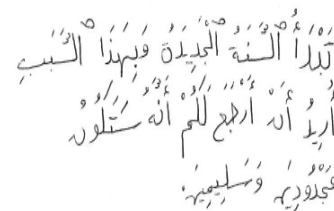 تَبْدَأُ السَّنَةُ الْجَدِيدَةُ وَبِهَذَا السَّبَبِ
أُرِيدُ أَنْ أَرْجَعَ لَكُمْ أَنَّهُ سَتَكُونُ
مَجْدُودِينَ وَسَلِيمِينَ.